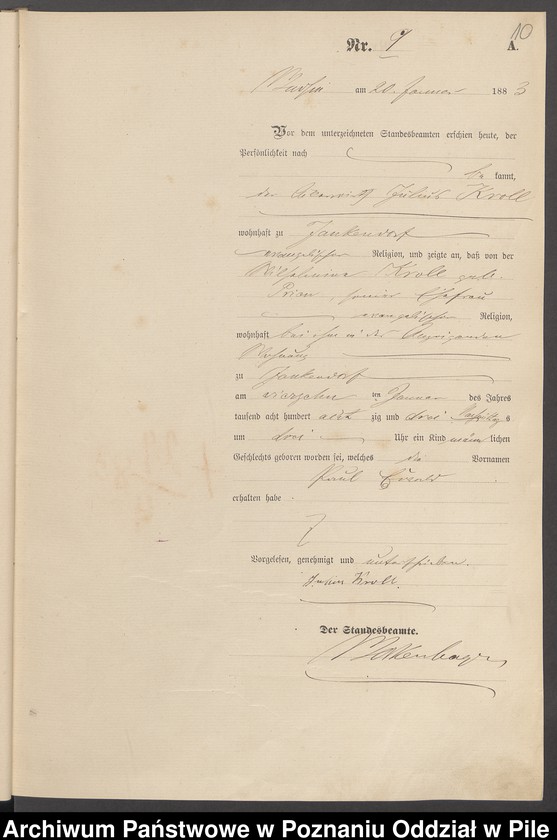 10
Nr. 9 A.
am 20. Januar 1883
Vor dem unterzeichneten Standesbeamten erschien heute, der
Persönlichkeit nach
be kannt,
der Julius Kroll
wohnhaft zu Jankendorf
evangelischer Religion, und zeigte an, daß von der
Wilhelmine Kroll geb.
seiner Ehefrau
evangelischer Religion,
wohnhaft bei ihm in der
Wohnung
zu Jankendorf
am vierzehn ten Januar des Jahres
tausend acht hundert acht zig und drei s
um drei Uhr ein Kind männ lichen
Geschlechts geboren worden sei, welches die Vornamen
Paul Ewald
erhalten habe
Vorgelesen, genehmigt und unterschrieben.
Julius Kroll.
Der Standesbeamte.
Archiwum Państwowe w Poznaniu Oddział w Pile